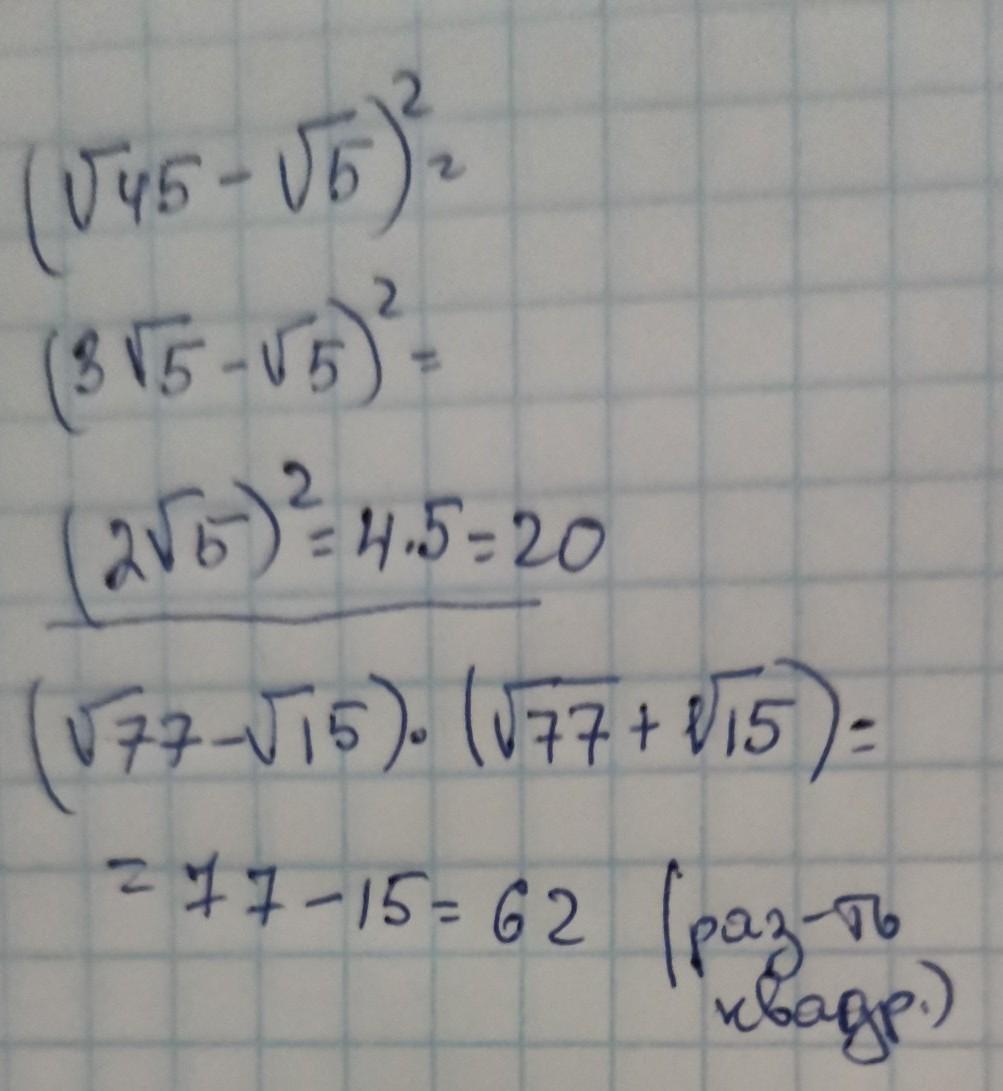 (√45 - √5)² =
(3√5 - √5)² =
(2√5)² = 4·5 = 20
(√77 - √15)·(√77 + √15) =
= 77 - 15 = 62 (раз-ть
квадр.)